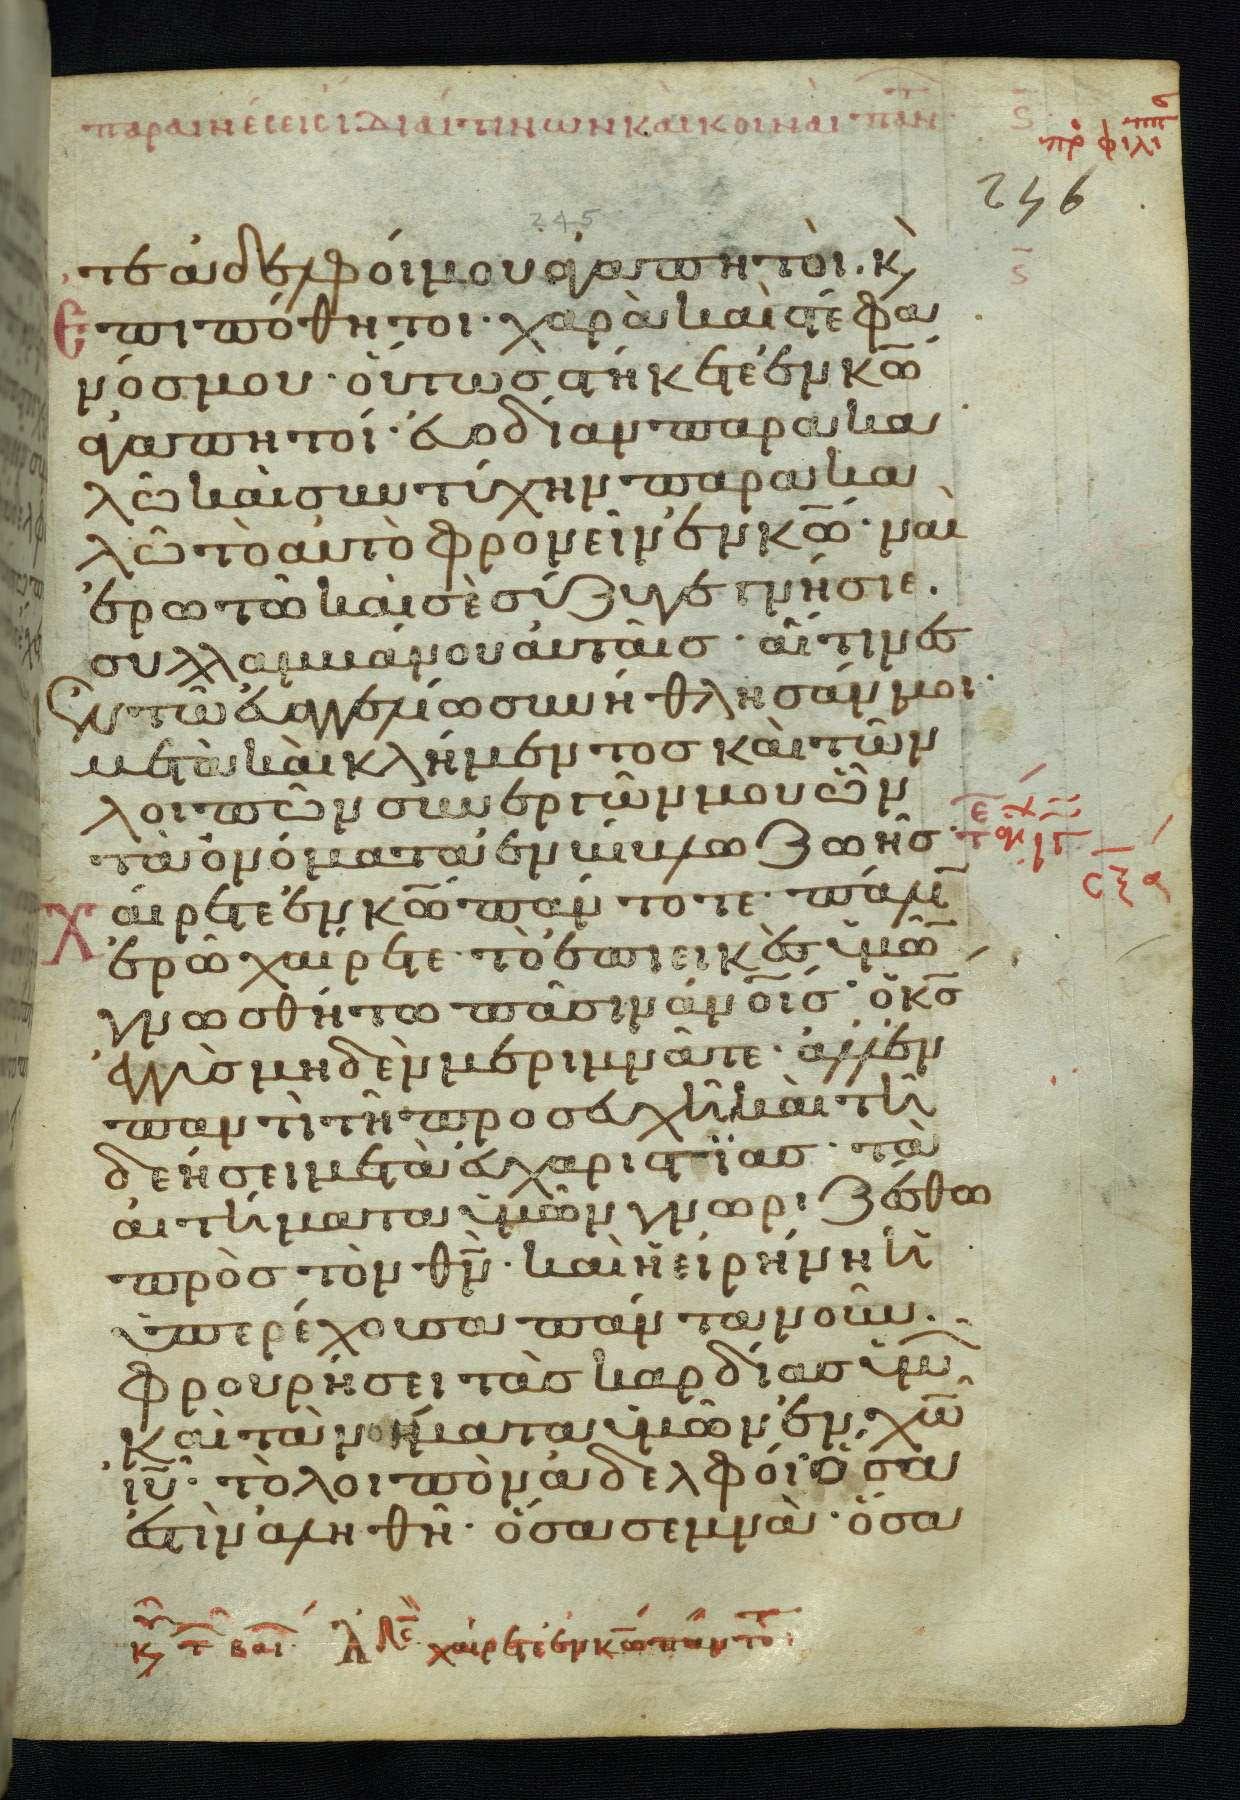 παραινέσεις ἰδίαι τινων καὶ κοιναὶ παν
ς
πρ φιλιππ
246
245
τε ἀδελφοί μου ἀγαπητοὶ. κ
ς
ἐπιπόθητοι· χαρὰ καὶ στέφα
νός μου· οὕτω στήκετε ἐν κω
ἀγαπητοί· ἐυοδίαν παρακα
λῶ καὶ συντύχην παρακα
λῶ τὸ αυτὸ φρονεῖν ἐν κω· ναὶ
ἐρωτῶ καὶ σὲ σύζυγε γνήσιε.
συλλαμβάνου αὐταῖς· αἵτινες
ἐν τῶ ἐυαγγελίω συνήθλησάν μοι·
μετὰ καὶ κλήμεντος καὶ τῶν
λοιπῶν συνεργῶν μου ὧν
τὰ ὀνόματα ἐν βίβλω ζωῆς·
σξα
χαίρετε ἐν κω πάντοτε· πάλιν
ἐρῶ χαίρετε· τὸ ἐπιεικὲς ὑμῶ
γνωσθήτω πᾶσιν ἀνοις· ὁ κς
ἐγγὺς μηδὲν μεριμνᾶτε· ἀλλ ἐν
παντὶ τῆ προσευχῆ καὶ τῆ
δεήσει μετὰ ἐυχαριστίας· τὰ
αἰτήματα ὑμῶν γνωριζέσθω
πρὸς τὸν θν· καὶ ἡ εἰρήνη ἡ
ὑπερέχουσα πάντα νοῦν.
φρουρήσει τὰς καρδίας ὑμ
καὶ τὰ νοήματα ὑμῶν ἐν χω
ιυ· τὸ λοιπὸν ἀδελφοί ὅσα
ἐστὶν ἀληθῆ· ὅσα σεμνὰ· ὅσα
κυ τ βαι ἀδε χαίρετε ἐν κω πάντο